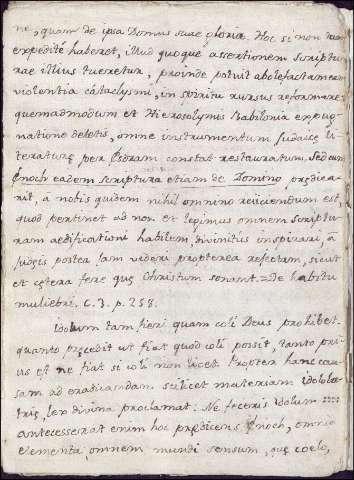 ne, quam de ipsa Domus suae gloria. Hoc si non tam
expedite haberet, illud quoque assertionem Scriptu
rae illius tueretur, proinde potuit abolefactam eam
violentia cataclysmi, in spiritu rursus reformare
quemadmodum et Hierosolymis Babilonia expug
natione deletis, omne instrumentum Judaicę li
teraturę per Esdram constat restauratum. Sed cum
Enoch eadem scriptura etiam de Domino prędica
rit, a nobis quidem nihil omnino reiiciendum est,
quod pertinet ad nos et legimus omnem Scriptu
ram aedificationi habilem divinitus inspirari, a
Judęis postea iam videri propterea reiectam, sicut
et cętera fere quę Christum sonant. = De habitu
muliebri. c. 3. p. 258.
Idolum tam fieri quam coli Deus prohibet.
quanto pręcedit ut fiat quod coli possit, tanto pri
us est ne fiat si coli non licet. Propter hanc cau
sam ad eradicandam scilicet materiam idolola
trię, lex divina proclamat: Ne feceris idolum
antecesserat enim hoc prędicens Enoch, omnia
elementa, omnem mundi sensum, quę coelo,